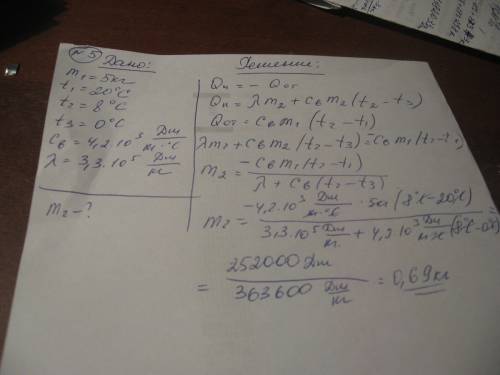 №5 Дано:
m₁ = 5кг
t₁ = 20°C
t₂ = 8°C
t₃ = 0°C
Cв = 4,2·10³ Дж/кг·°C
λ = 3,3·10⁵ Дж/кг
m₂ – ?
Решение:
Qп = – Qот
Qп = λm₂ + Cв m₂ (t₂ – t₃)
Qот = Cв m₁ (t₂ – t₁)
λm₂ + Cв m₂ (t₂ – t₃) = –Cв m₁ (t₂ – t₁)
m₂ = –Cв m₁ (t₂ – t₁) / λ + Cв (t₂ – t₃)
m₂ = –4,2·10³ Дж/кг·°C · 5кг (8°C – 20°C) / 3,3·10⁵ Дж/кг + 4,2·10³ Дж/кг·°C (8°C – 0°C)
= 252000 Дж / 363600 Дж/кг = 0,69 кг